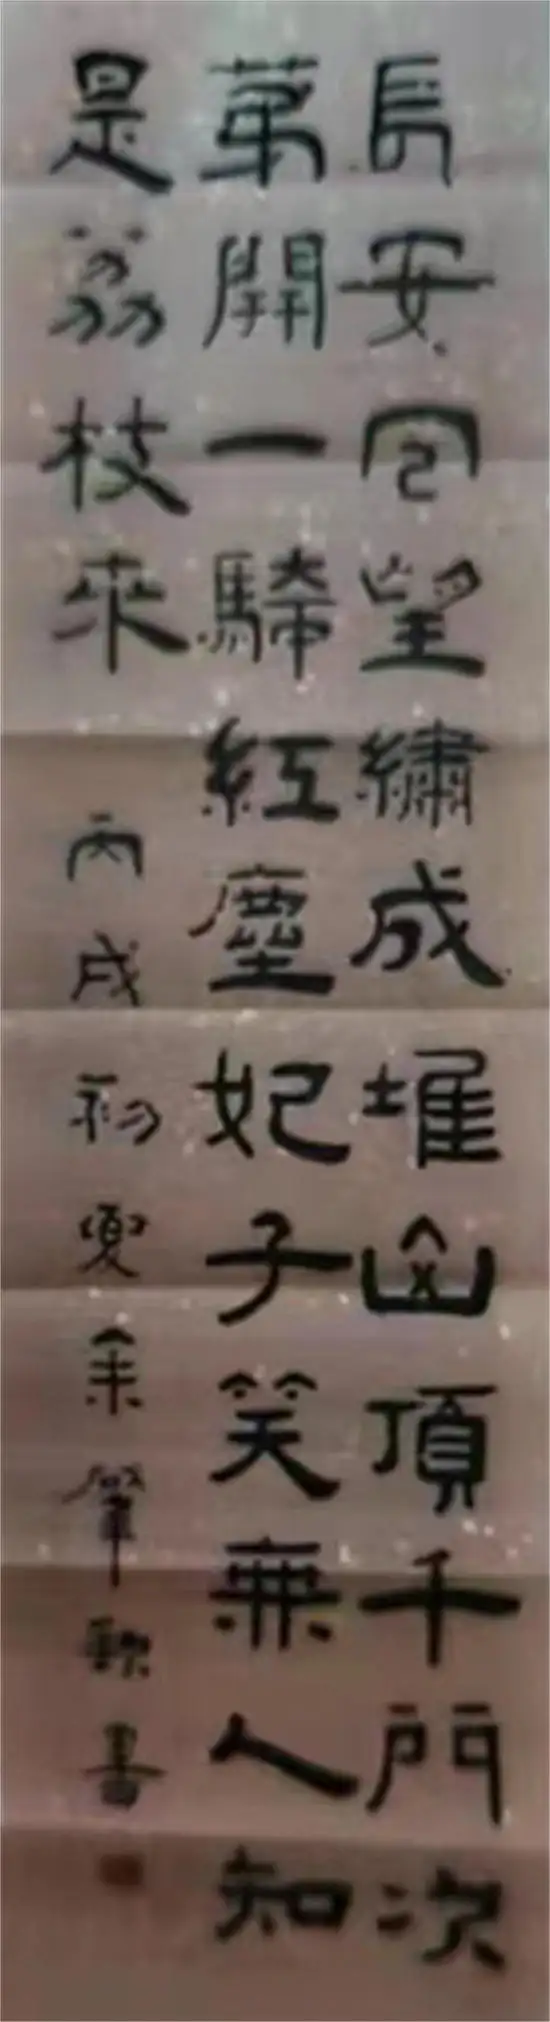 長安回望繡成堆山頂千門次
第開一騎紅塵妃子笑無人知
是荔枝來 丙戌初夏余肇歌書